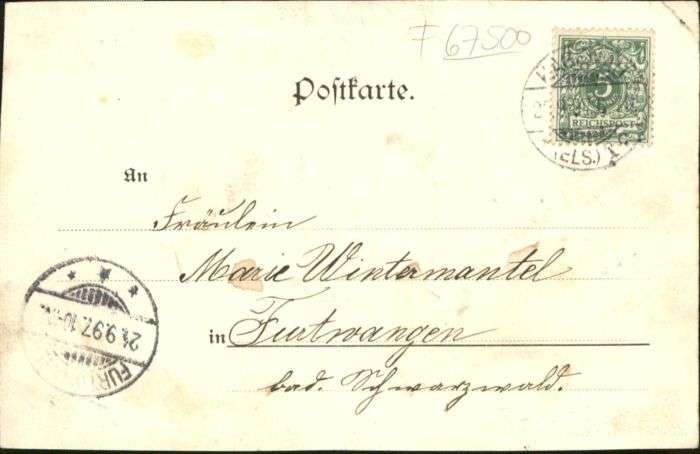 F 67500
Postkarte.
5
REICHSPOST
(ELS.)
An
Fräulein
Marie Wintermantel
in Furtwangen
bad. Schwarzwald.
21.9.97.
FURT